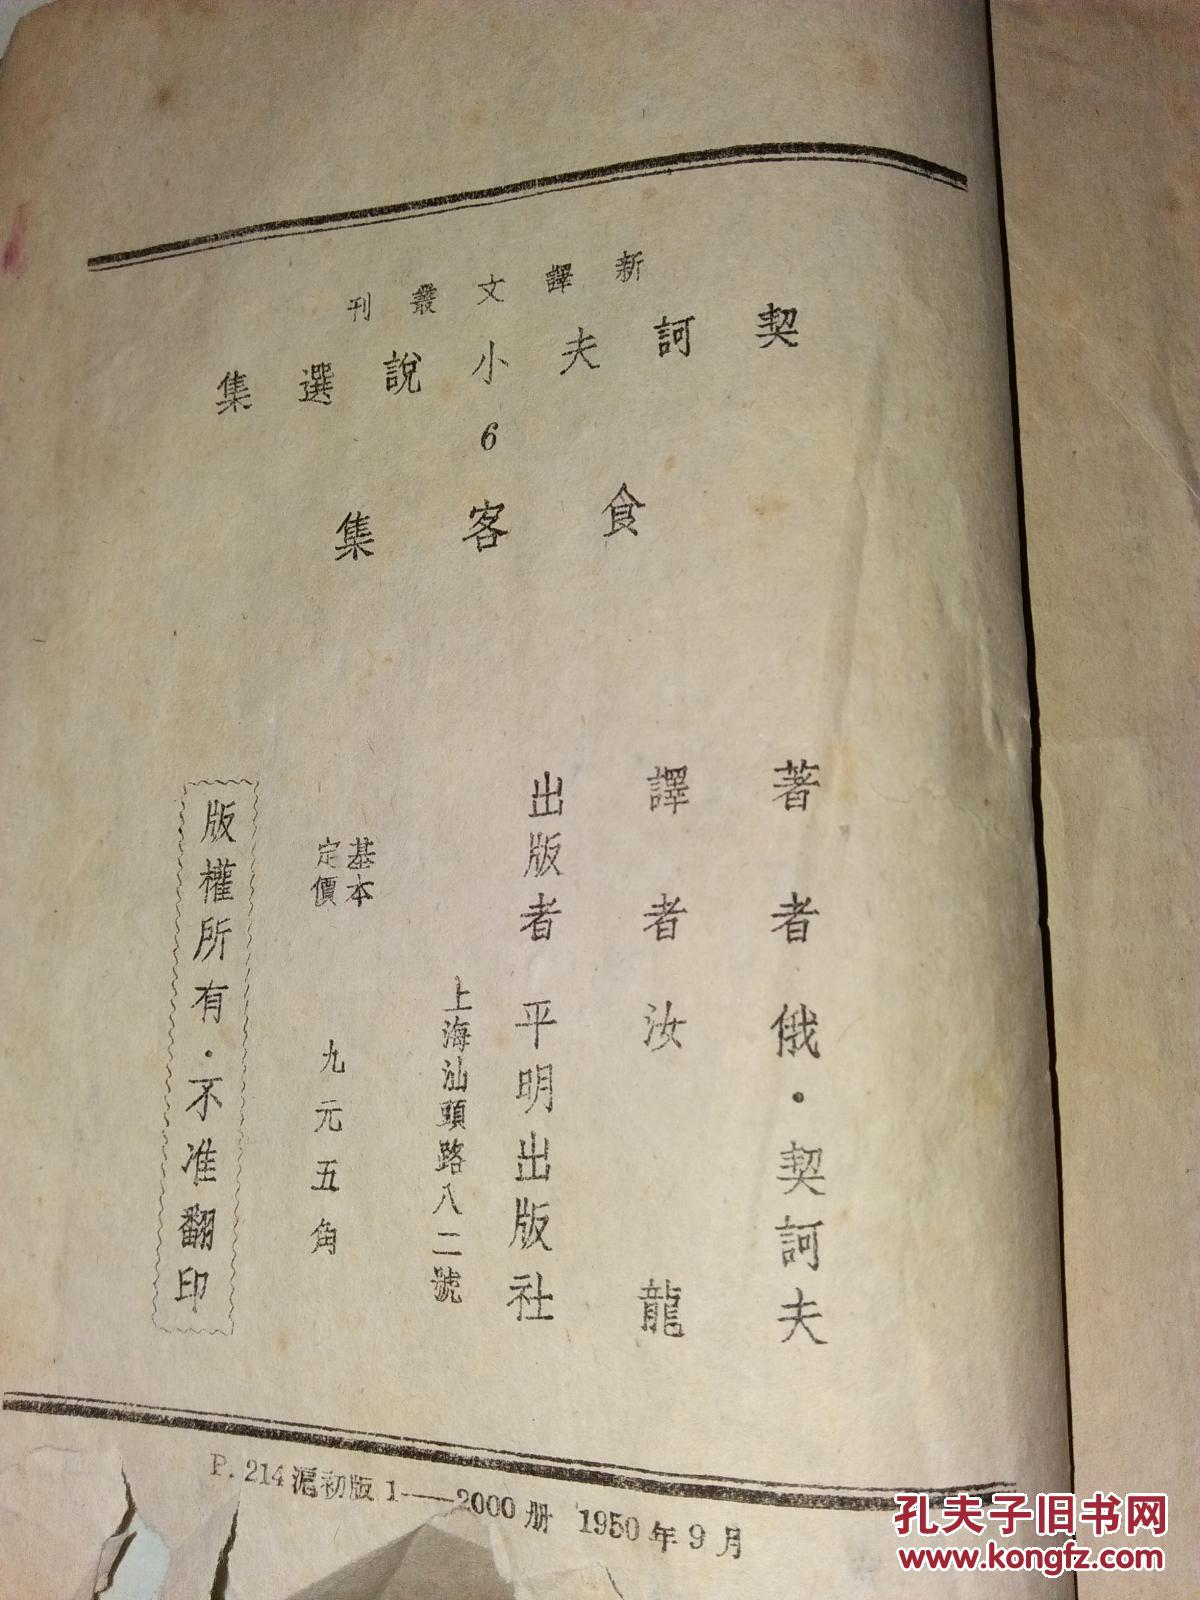 新譯文叢刊
契訶夫小說選集
6
食客集
著者 俄·契訶夫
譯者 汝龍
出版者 平明出版社
上海汕頭路八二號
基本定價 九元五角
版權所有·不准翻印
P. 214 滬初版 1——2000 册 1950年9月
孔夫子旧书网
www.kongfz.com